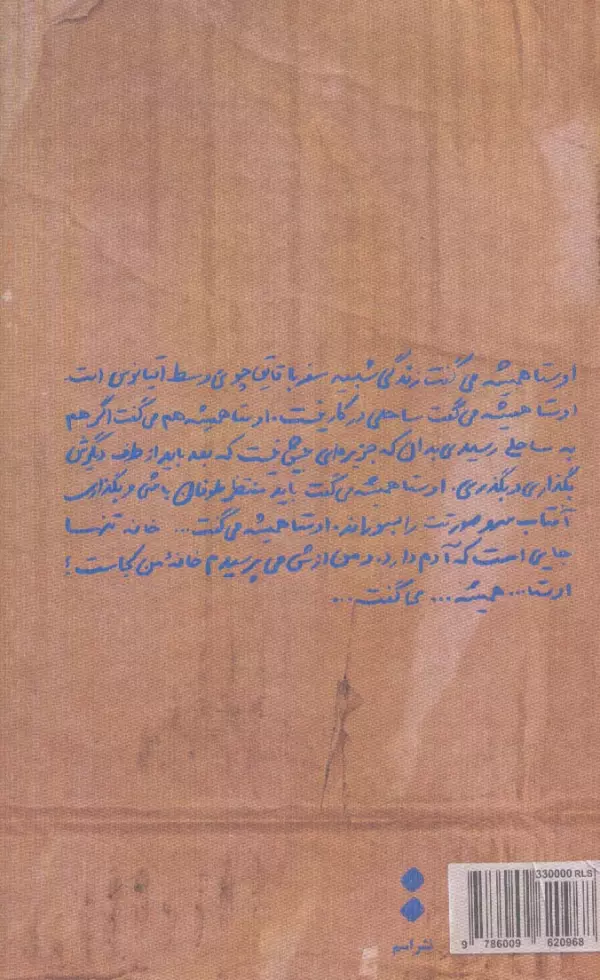 اوستا همیشه می گفت زندگی شبیه سفر با قایق چوبی وسط اقیانوس است
اوستا همیشه می گفت ساحلی در کار نیست. اوستا همیشه هم می گفت اگر هم
به ساحلی رسیدی بدان که جزیره‌ای بیش نیست که بعد باید از طرف دیگرش
بگذاری و بگذری. اوستا همیشه می گفت باید منتظر طوفان باشی و بگذاری
آفتاب صورتت را بسوزاند. اوستا همیشه می گفت... خانه تنها
جایی است که آدم دارد. و من ازش می پرسیدم خانهٔ من کجاست؟
اوستا... همیشه... می گفت...
330000 RLS
9 786009 620968
نشر اسم